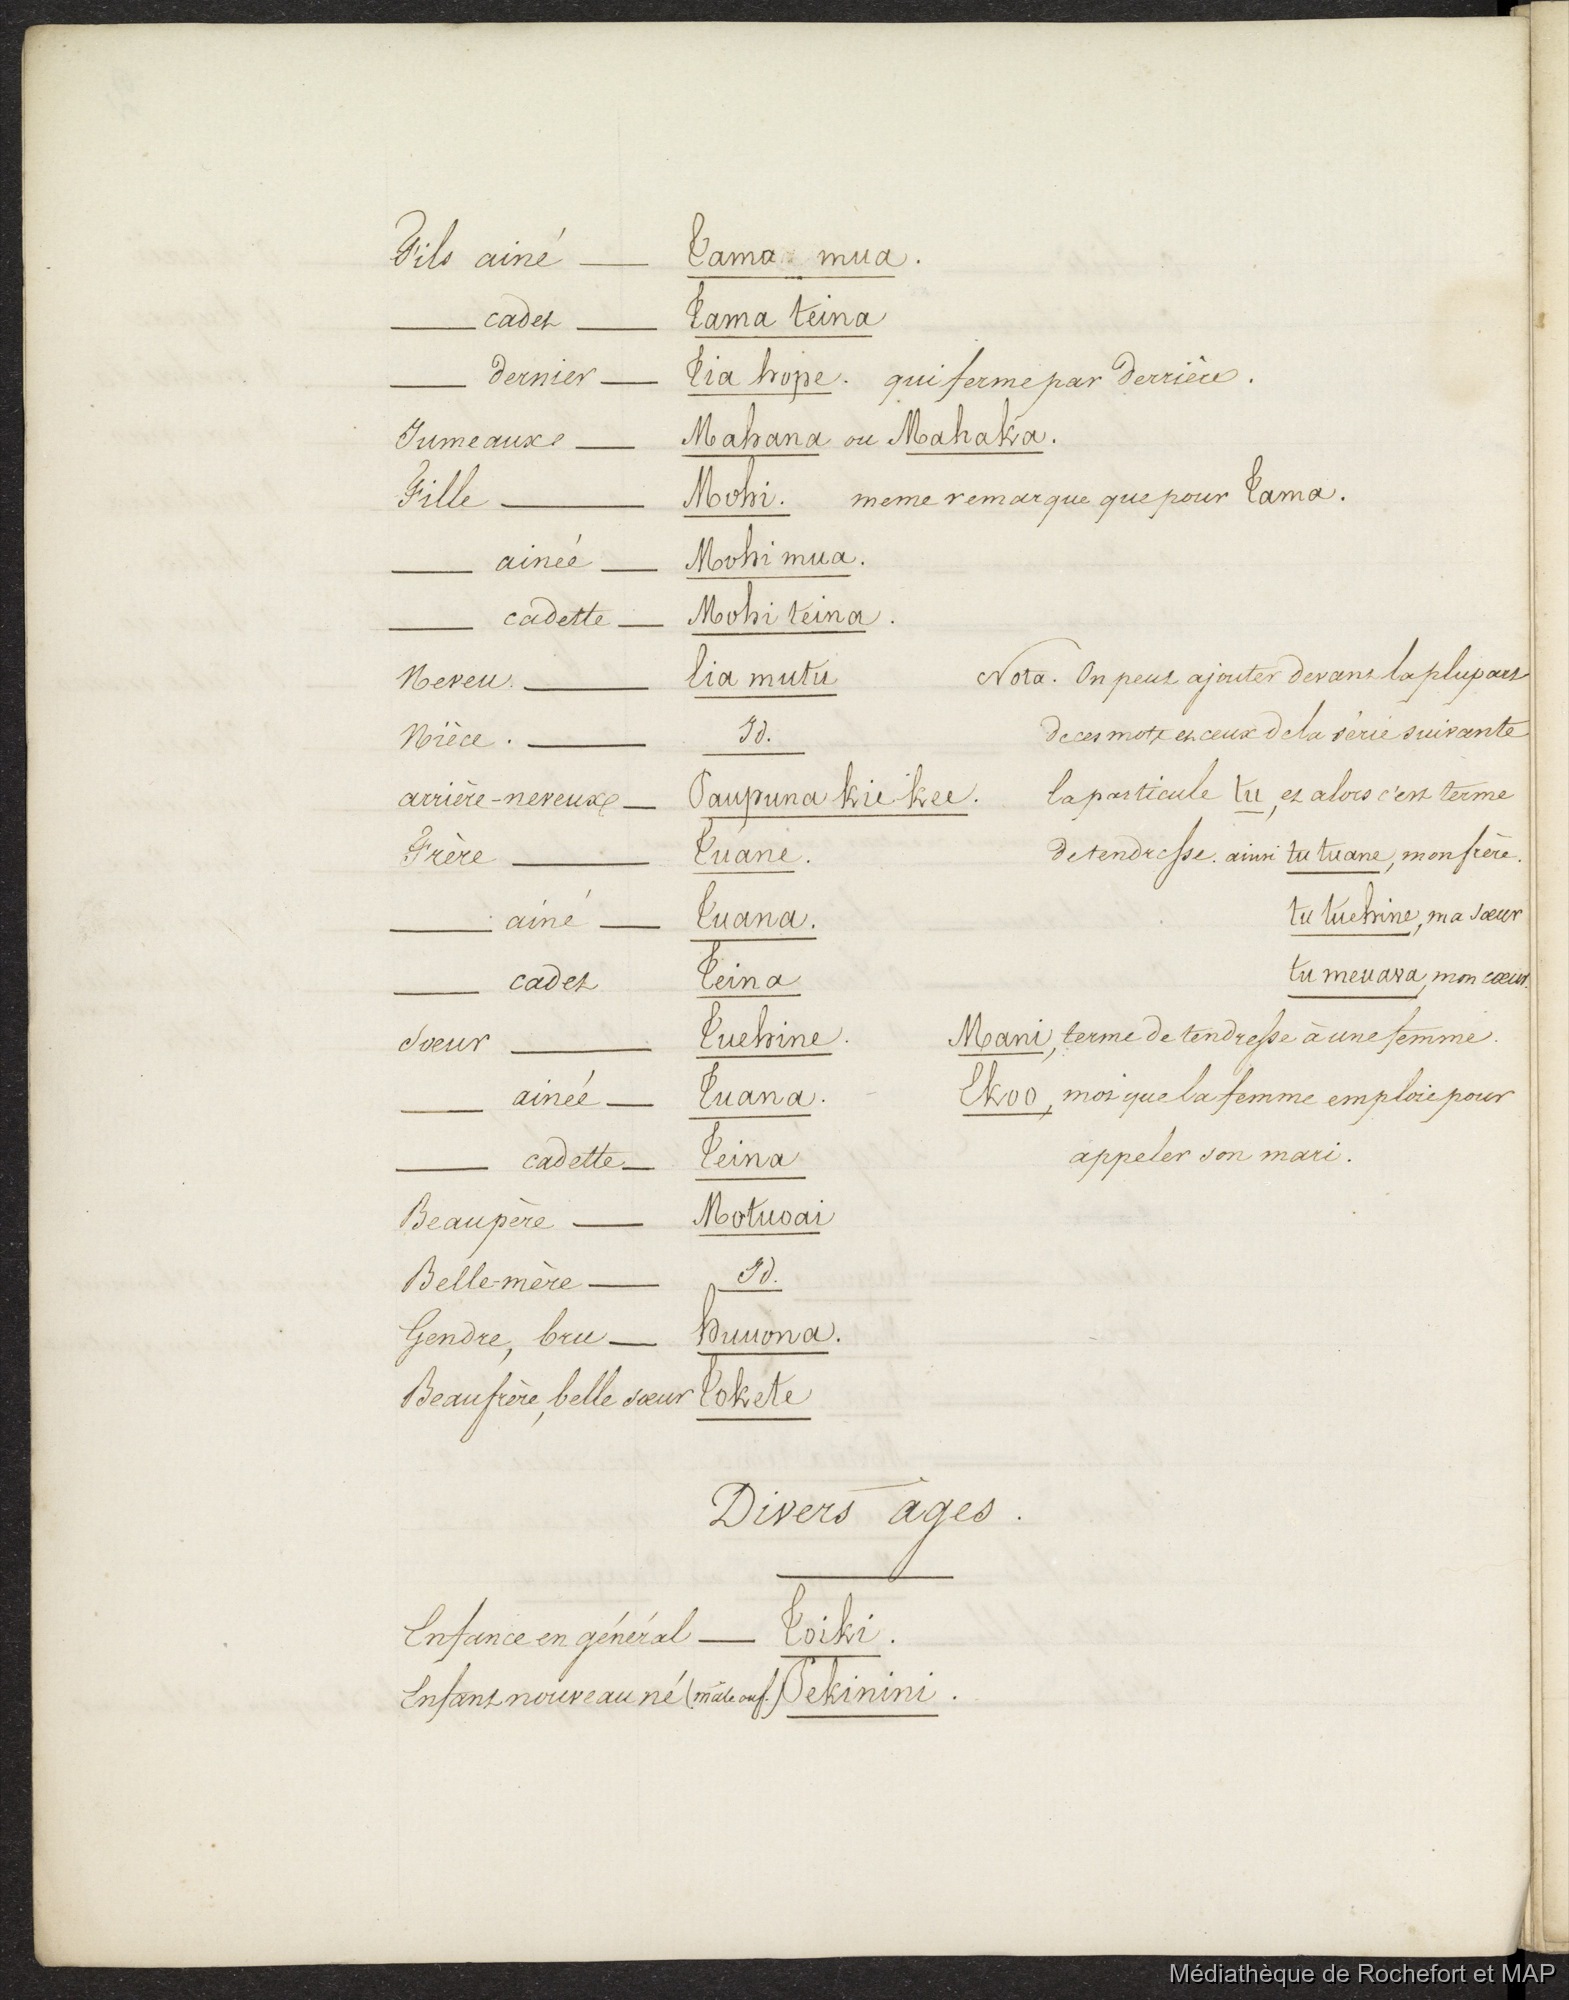 Fils ainé — Tama mua.
— cadet — Tama teina
— dernier — Tia hope. qui ferme par derrière.
Jumeaux — Mahana ou Mahaka.
Fille — Mohi. meme remarque que pour Tama.
— ainée — Mohi mua.
— cadette — Mohi teina.
Neveu. — Tia mutu
Nièce. — Id.
arrière-neveux — Paupuna kie kee.
Frère — Tuane.
— ainé — Tuana.
— cadet Teina
Soeur — Tuehine.
— ainée — Tuana.
— cadette — Teina
Beaupère — Motuoai
Belle-mère — Id.
Gendre, bru — hunona.
Beaufrère, belle sœur Tokete
Nota. On peut ajouter devant la plupart
de ces mots et ceux de la série suivante
la particule tu, et alors c'est terme
de tendresse. ainsi tu tuane, mon frère.
tu tuehine, ma sœur
tu meuara, mon cœur.
Mani, terme de tendresse à une femme.
Ekoo, mot que la femme emploie pour
appeler son mari.
Divers âges.
Enfance en général — Toiki.
Enfant nouveau né (mâle ou f.) Pekinini.
Médiathèque de Rochefort et MAP